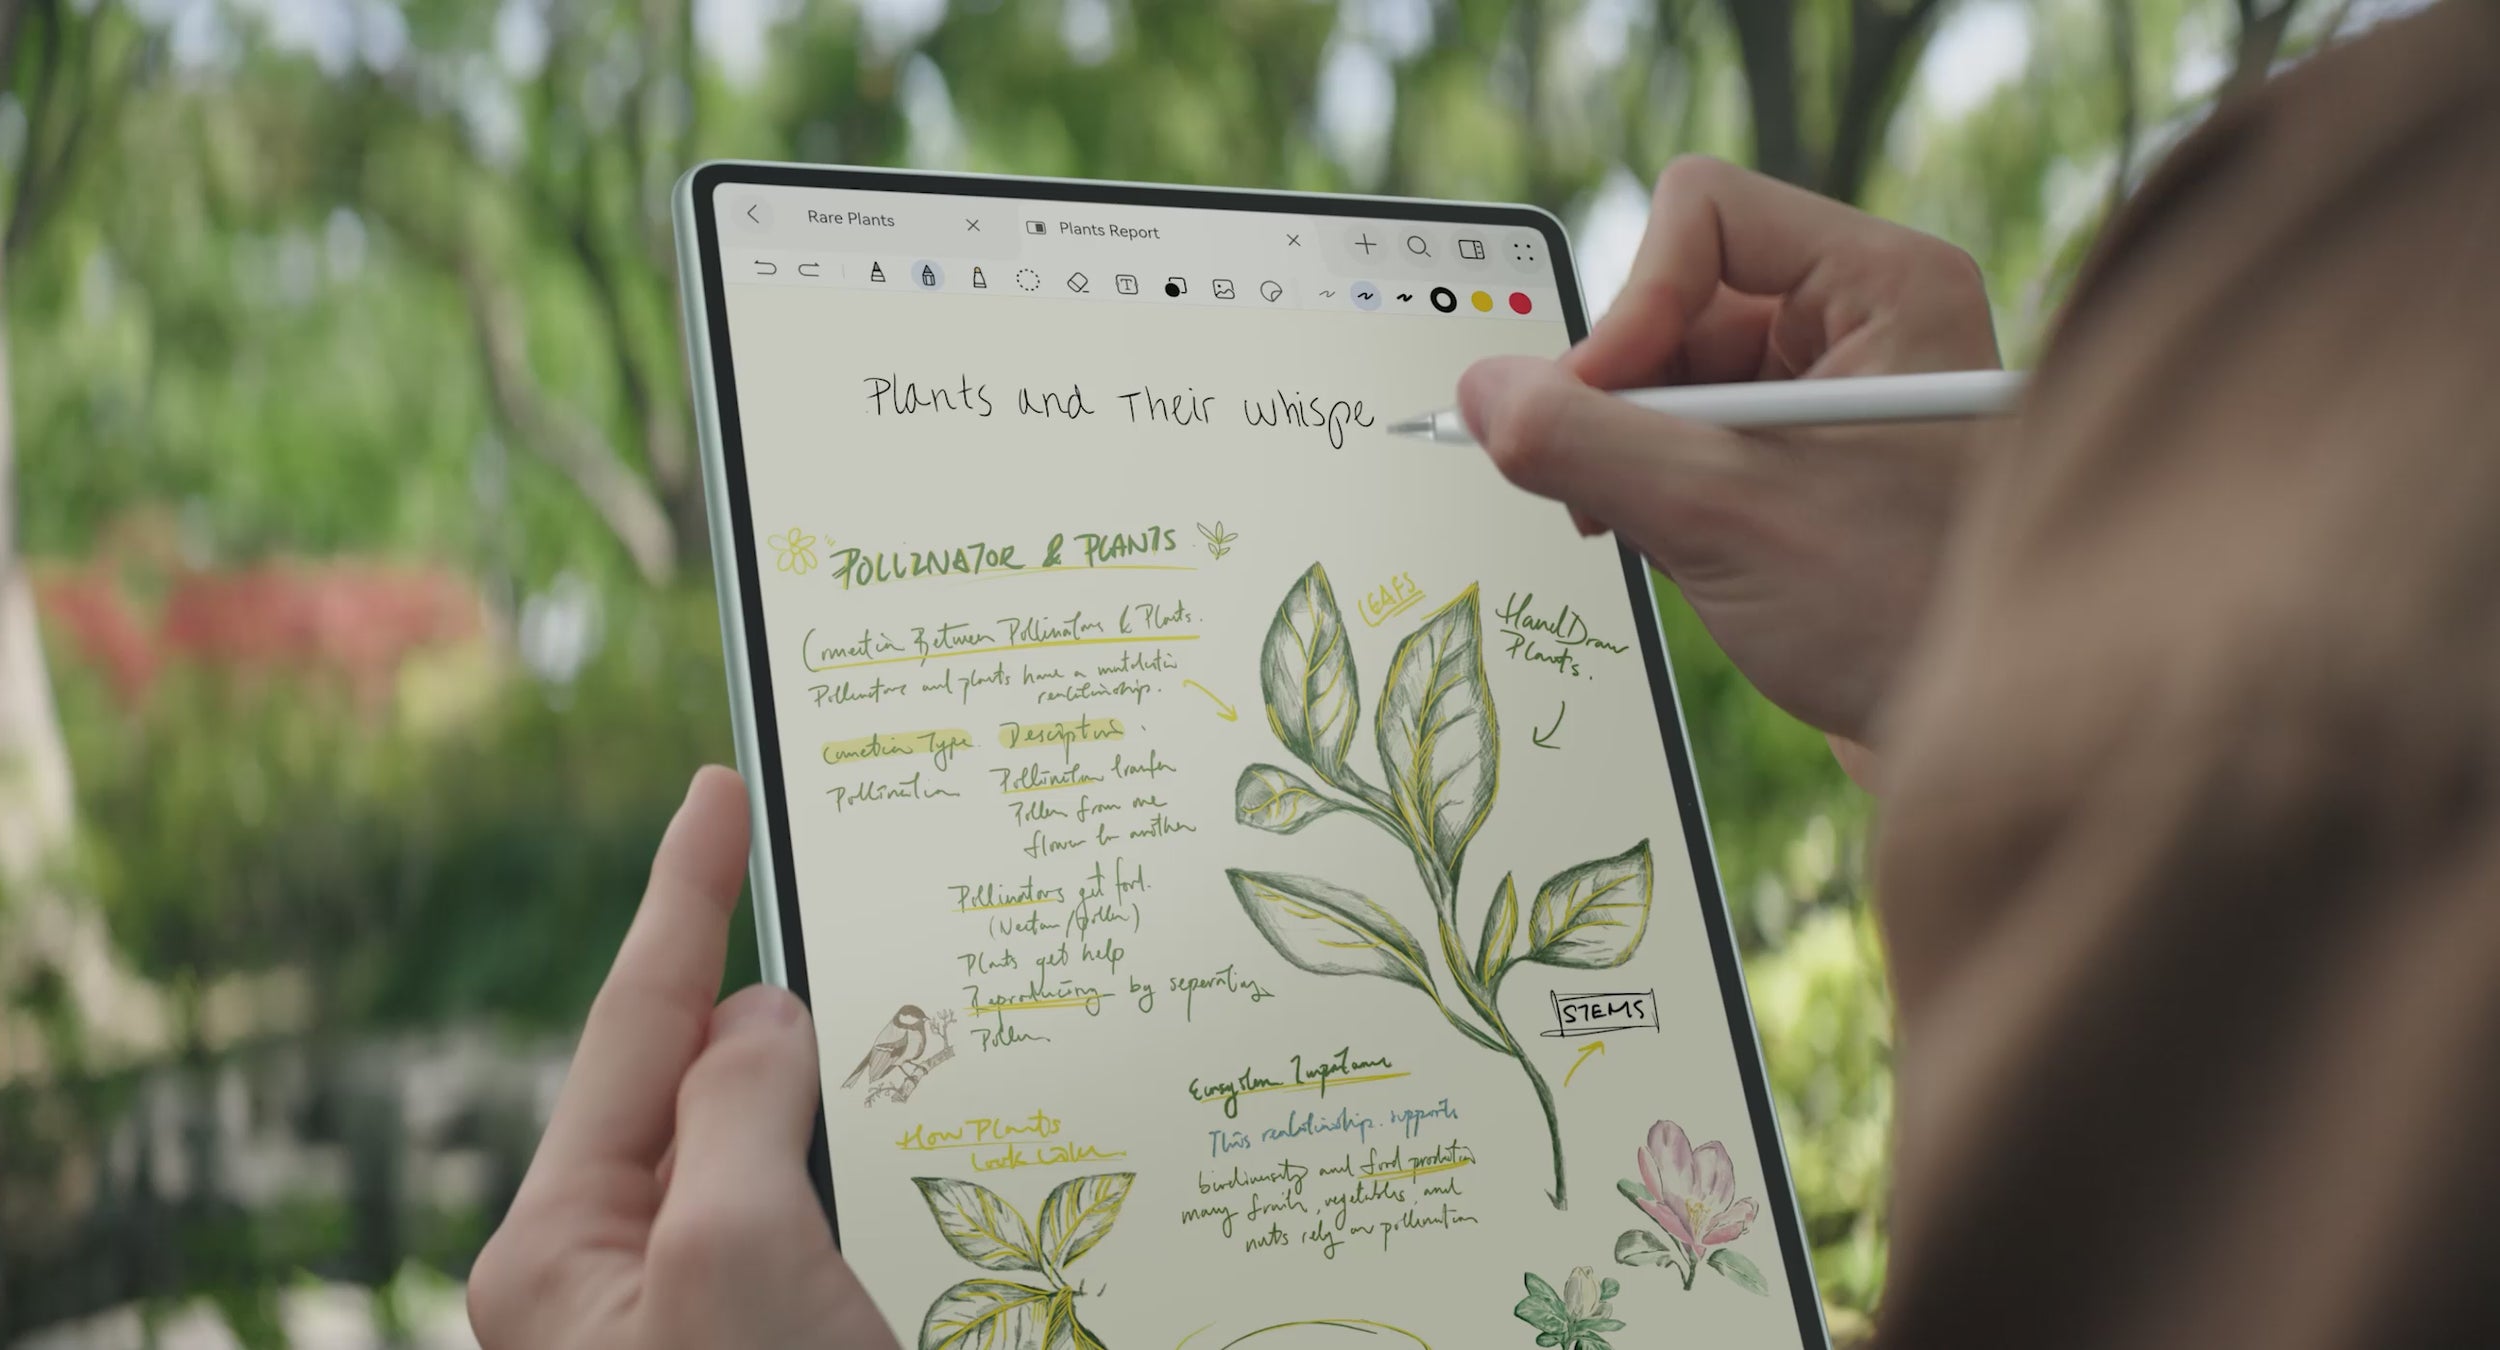 Rare Plants
Plants Report
Plants and Their whispe
POLLINATOR & PLANTS
LEAFS
Hand Draw
Plants.
Connection Between Pollinators & Plants.
Pollinators and plants have a
relationship.
Connection Type. Description.
Pollination Pollination transfer
Pollen from one
flower to another
Pollinators get food.
(Nectar/pollen)
Plants get help
Reproducing by seperating
Pollen.
STEMS
Ecosystem Importance
This realationship. supports
biodiversity and food production
many fruits, vegetables, and
nuts rely on pollination
How Plants
Look Like